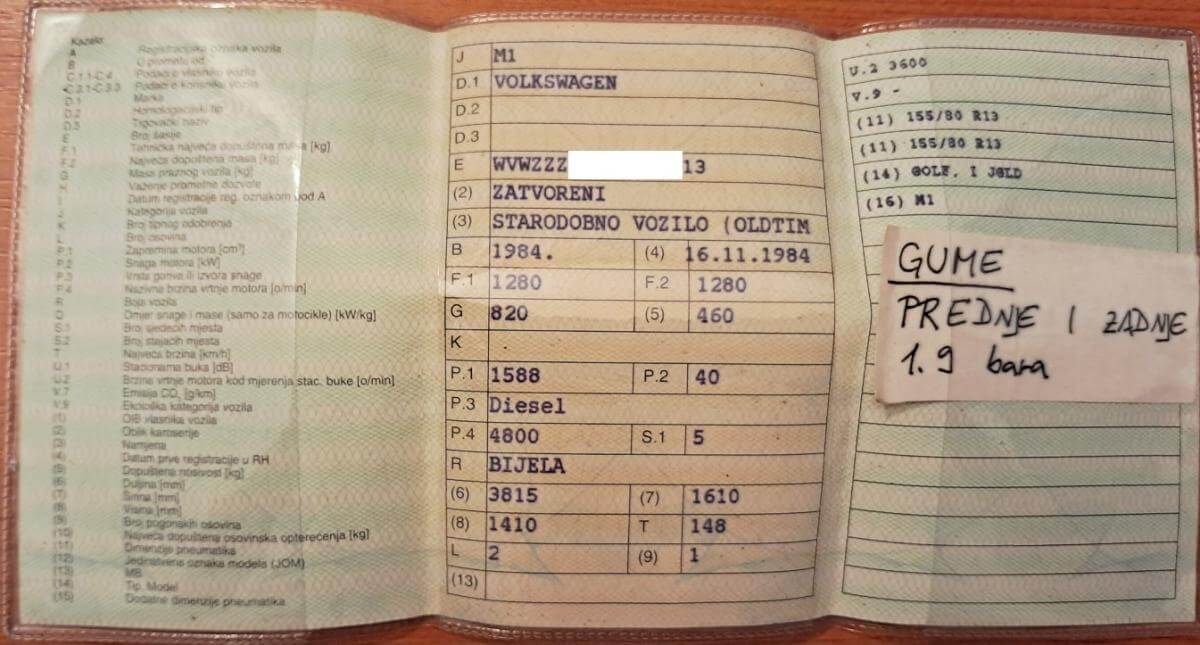 Kazalo:
A Registracijska oznaka vozila
B U prometu od
C.1.1-C.4 Podaci o vlasniku vozila
C.3.1-C.3.3 Podaci o korisniku vozila
D.1 Marka
D.2 Homologacijski tip
D.3 Trgovački naziv
E Broj šasije
F.1 Tehnička najveća dopuštena masa [kg]
F.2 Najveća dopuštena masa [kg]
G Masa praznog vozila [kg]
H Važenje prometne dozvole
I Datum registracije reg. oznakom pod A
J Kategorija vozila
K Broj tipnog odobrenja
L Broj osovina
P.1 Zapremina motora [cm³]
P.2 Snaga motora [kW]
P.3 Vrsta goriva ili izvora snage
P.4 Nazivna brzina vrtnje motora [o/min]
R Boja vozila
Q Omjer snage i mase (samo za motocikle) [kW/kg]
S.1 Broj sjedećih mjesta
S.2 Broj stajaćih mjesta
T Najveća brzina [km/h]
U.1 Stacionarna buka [dB]
U.2 Brzina vrtnje motora kod mjerenja stac. buke [o/min]
V.7 Emisija CO₂ [g/km]
V.9 Ekološka kategorija vozila
(1) OIB vlasnika vozila
(2) Oblik karoserije
(3) Namjena
(4) Datum prve registracije u RH
(5) Dopuštena nosivost [kg]
(6) Duljina [mm]
(7) Širina [mm]
(8) Visina [mm]
(9) Broj pogonskih osovina
(10) Najveća dopuštena osovinska opterećenja [kg]
(11) Dimenzije pneumatika
(12) Jedinstvena oznaka modela (JOM)
(13) MB
(14) Tip, Model
(15) Dodatne dimenzije pneumatika
J M1
D.1 VOLKSWAGEN
D.2
D.3
E WVWZZZ 13
(2) ZATVORENI
(3) STARODOBNO VOZILO (OLDTIM
B 1984. (4) 16.11.1984
F.1 1280 F.2 1280
G 820 (5) 460
K
P.1 1588 P.2 40
P.3 Diesel
P.4 4800 S.1 5
R BIJELA
(6) 3815 (7) 1610
(8) 1410 T 148
L 2 (9) 1
(13)
U.2 3600
V.9 -
(11) 155/80 R13
(11) 155/80 R13
(14) GOLF, I JGLD
(16) M1
GUME
PREDNJE I ZADNJE
1.9 bara